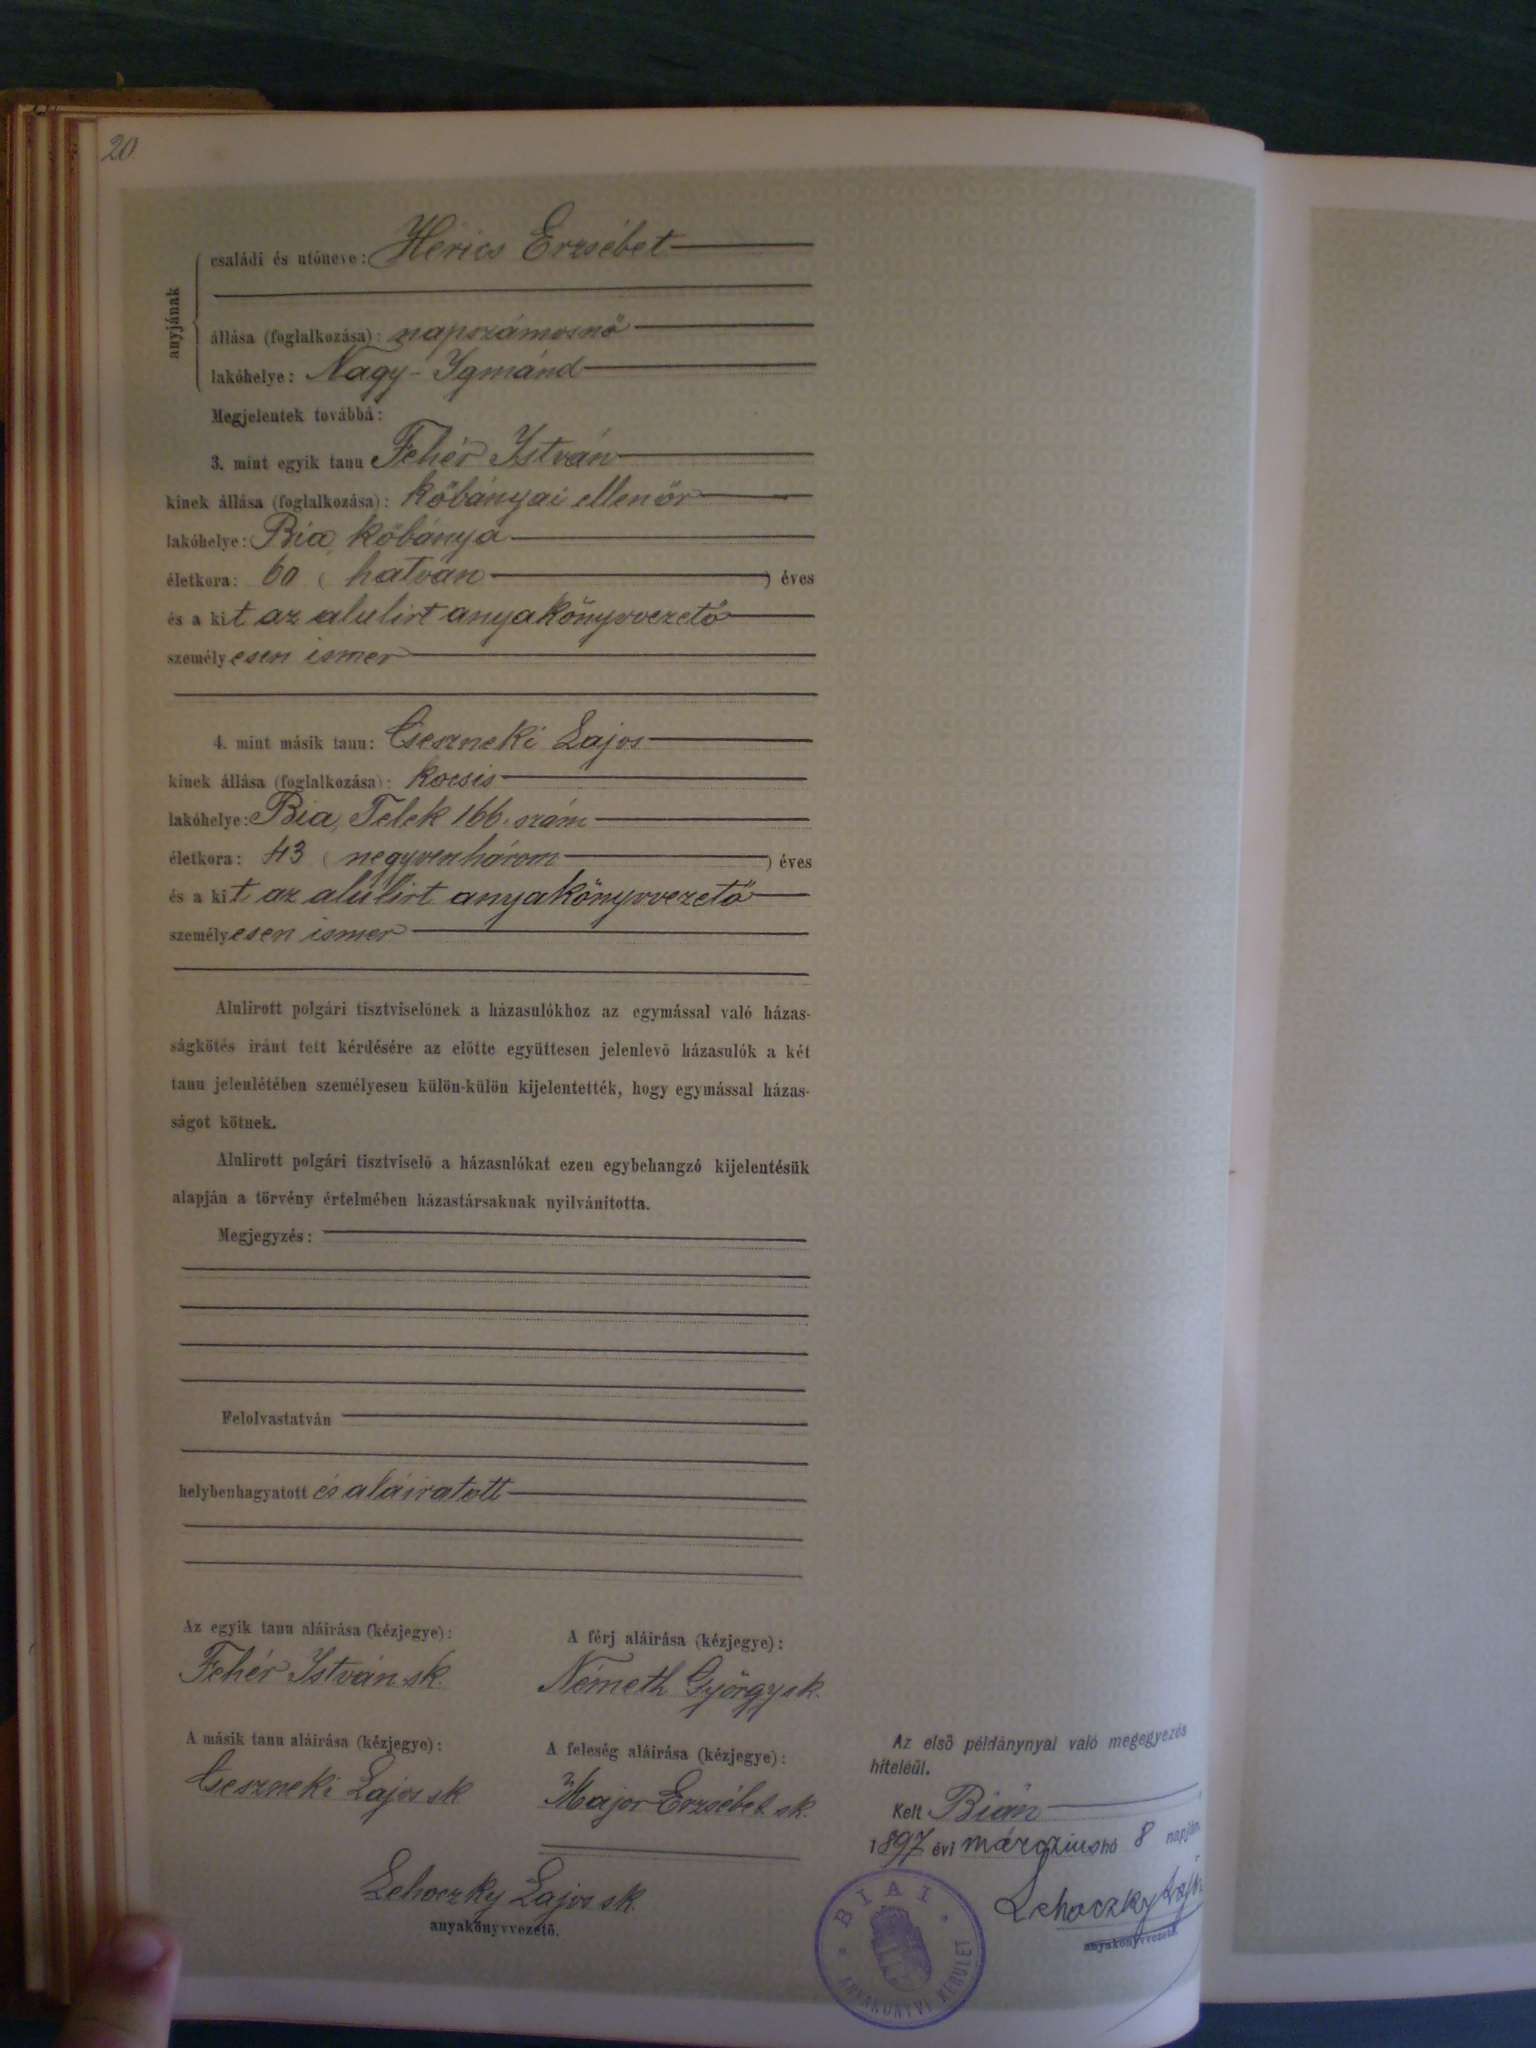 20
anyjának
családi és utóneve: Hérics Erzsébet
állása (foglalkozása): napszámosnő
lakóhelye: Nagy-Igmánd
Megjelentek továbbá:
3. mint egyik tanu Fehér István
kinek állása (foglalkozása): kőbányai ellenőr
lakóhelye: Bia, kőbánya
életkora: 60 (hatvan) éves
és a kit az alulirt anyakönyvvezető
személyesen ismer
4. mint másik tanu: Cseszneki Lajos
kinek állása (foglalkozása): kocsis
lakóhelye: Bia, Telek 166. szám
életkora: 43 (negyvenhárom) éves
és a kit az alulirt anyakönyvvezető
személyesen ismer
Alulirott polgári tisztviselőnek a házasulókhoz az egymással való házas-
ságkötés iránt tett kérdésére az előtte együttesen jelenlevő házasulók a két
tanu jelenlétében személyesen külön-külön kijelentették, hogy egymással házas-
ságot kötnek.
Alulirott polgári tisztviselő a házasulókat ezen egybehangzó kijelentésük
alapján a törvény értelmében házastársaknak nyilvánította.
Megjegyzés:
Felolvastatván
helybenhagyatott és aláiratott
Az egyik tanu aláirása (kézjegye):
Fehér István sk.
A férj aláirása (kézjegye):
Németh György sk.
A másik tanu aláirása (kézjegye):
Cseszneki Lajos sk
A feleség aláirása (kézjegye):
Major Erzsébet sk.
Lehoczky Lajos sk.
anyakönyvvezető.
Az első példánynyal való megegyezés
hiteléül.
Kelt Bián
1897 évi márczius hó 8 napján
Lehoczky Lajos
anyakönyvvezető.
BIAI
ANYAKÖNYVI KERÜLET